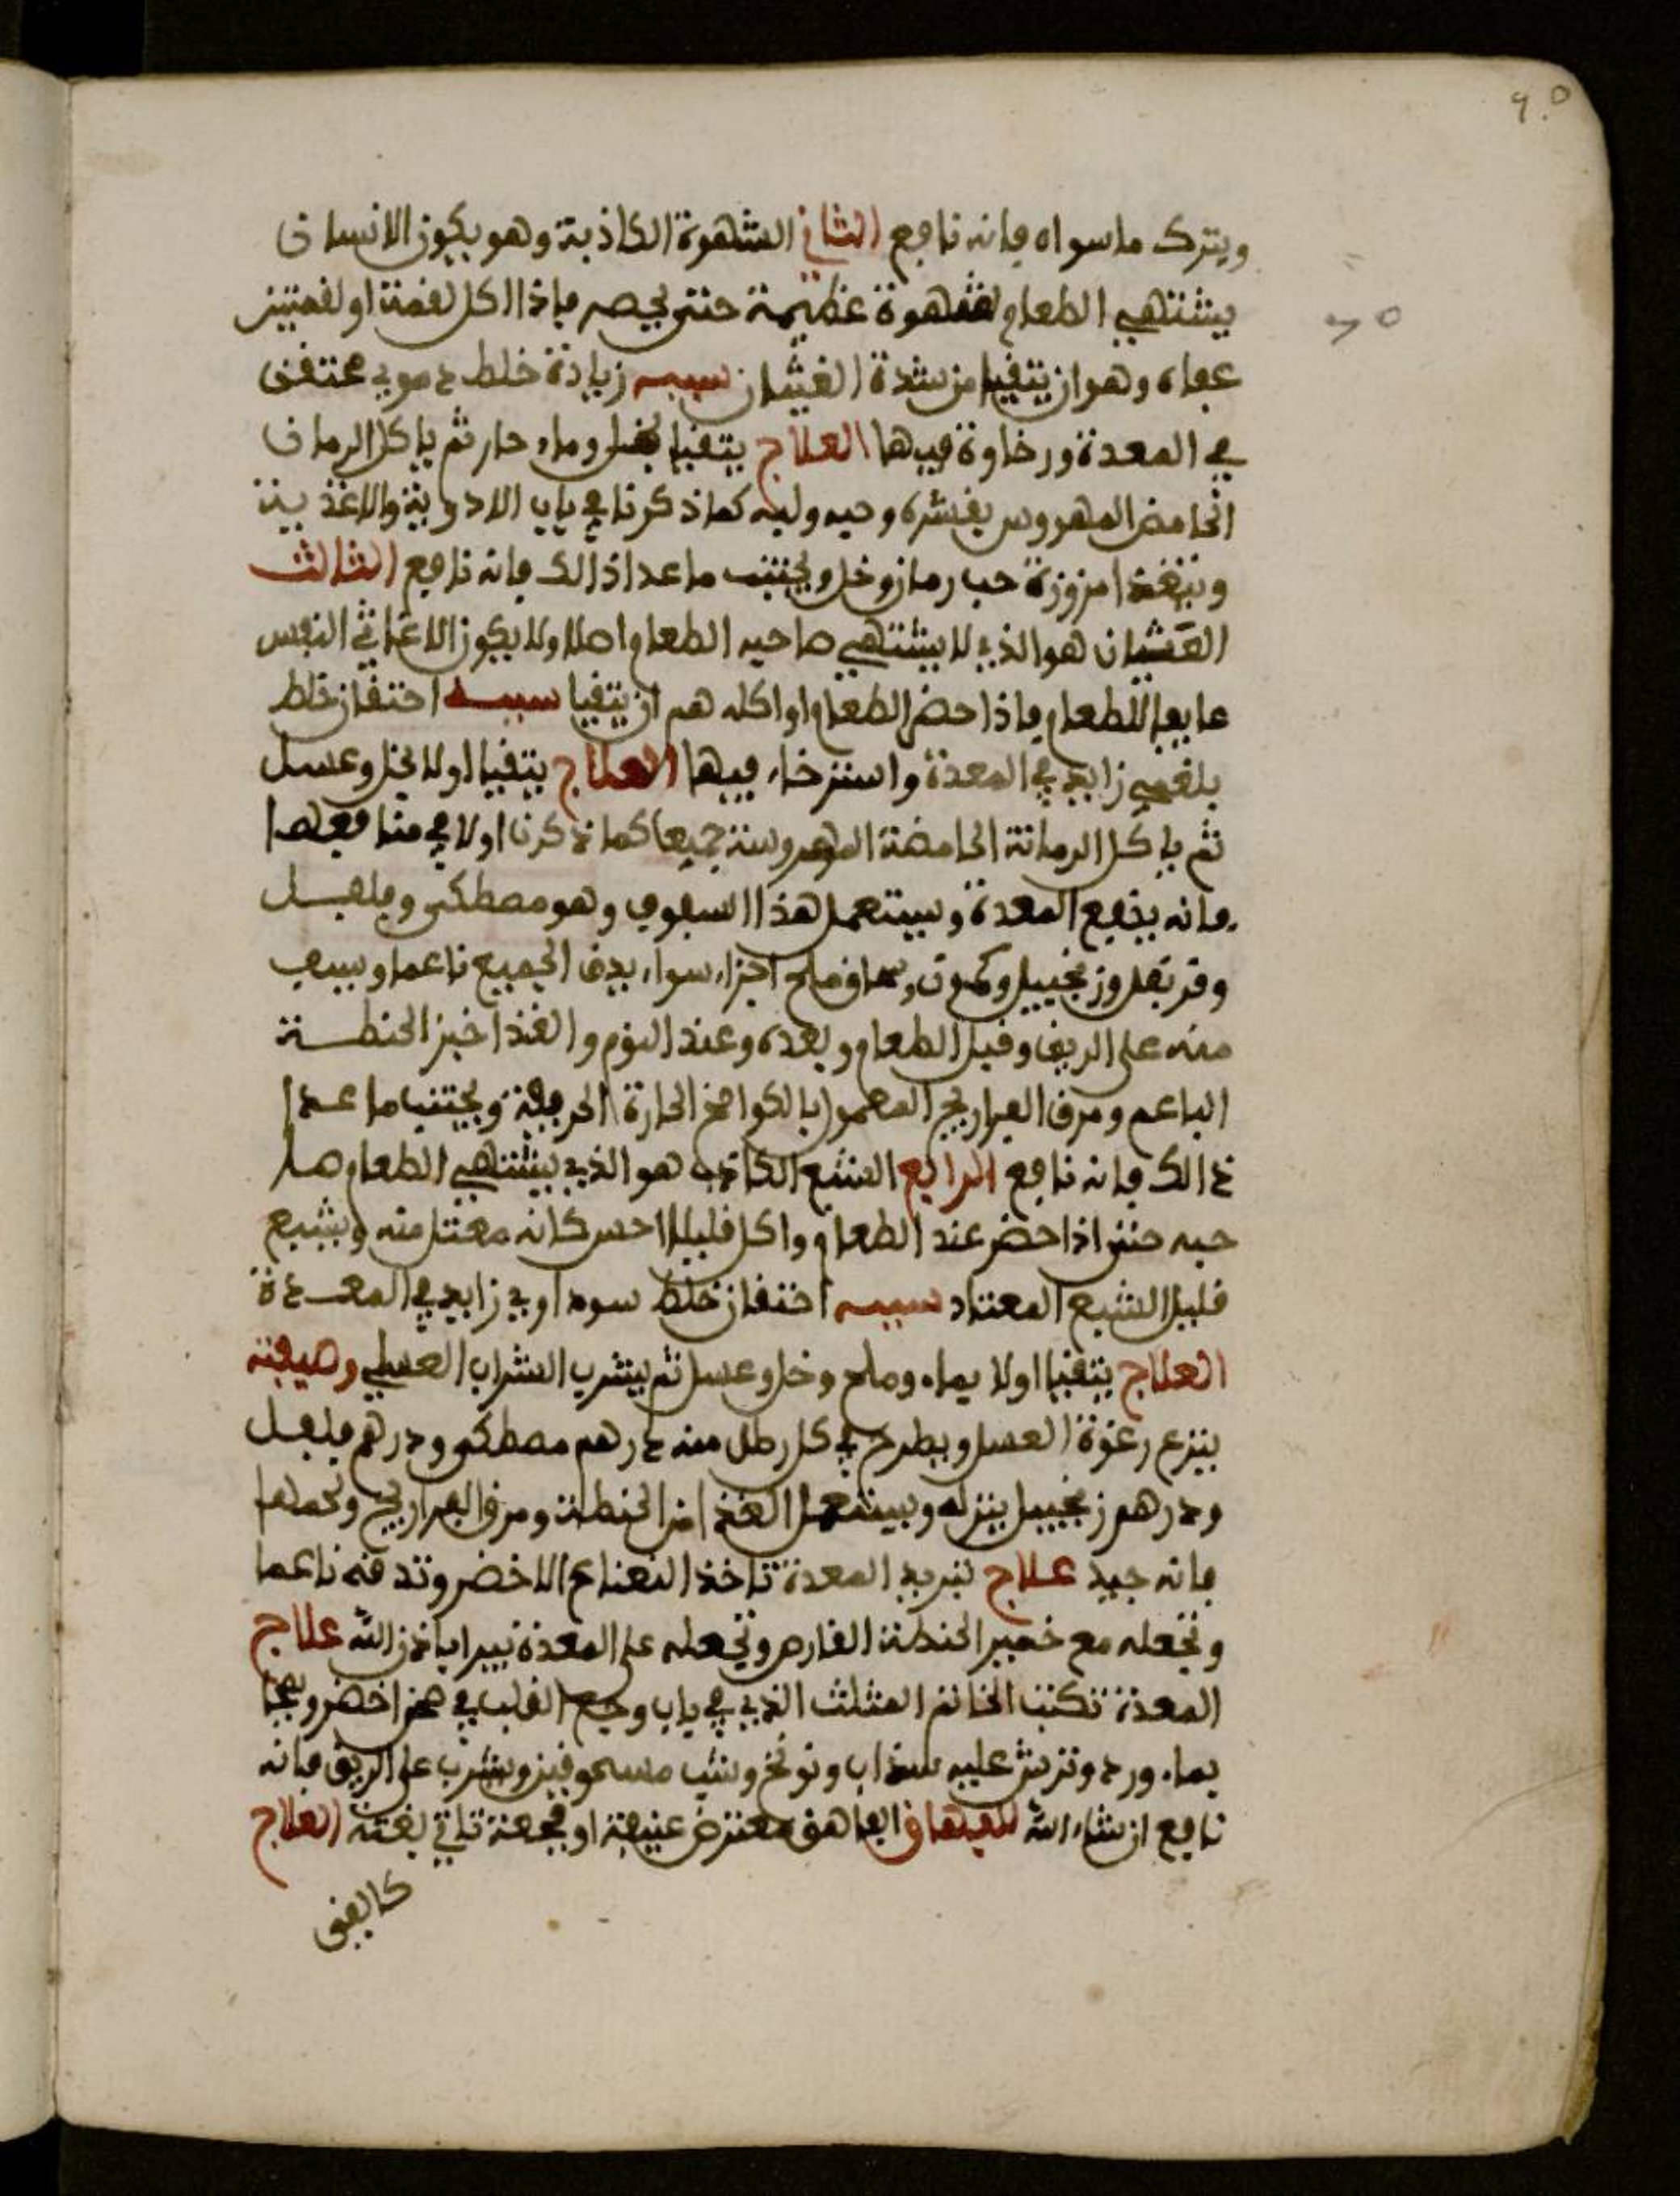 ويترك ما سواه فانه نافع الثاني الشهوة الكاذبة وهو يكون الانسان
يشتهي الطعام شهوة عظيمة حتى يحضر فاذا اكل لقمة او لقمتين
عافاه وهو ان يتقيا من شدة الغثيان سببه زيادة خلط دموي محتقن
في المعدة ورخاوة فيها العلاج يتقيا بخل وماء حار ثم ياكل الرمان
الحامض المهروس بقشره وحبه ولبه كما ذكرنا في باب الادوية والاغذية
ويتغذا مزوزة حب رمان وخل ويجتنب ما عدا ذالك فانه نافع الثالث
الغثيان هو الذي لا يشتهي صاحبه الطعام اصلا ولا يكون الا غاثي النفس
عايفا للطعام فاذا حضر الطعام او اكله هم ان يتقيا سببه احتقان خلط
بلغمي زايد في المعدة واسترخاء فيها العلاج يتقيا اولا بخل وعسل
ثم ياكل الرمانة الحامضة المهروسة جميعا كما ذكرنا اولا في منافعها
فانه ينفع المعدة ويستعمل هذا السفوف وهو مصطكى وفلفل
وقرنفل وزنجبيل وكمون وملح اجزاء سواء يدق الجميع ناعما ويسف
منه على الريق وقبل الطعام وبعده وعند النوم والغذا خبز الحنطة
الناعم ومرق الفراريج المعمول بالكوامخ الحارة الحريفة ويجتنب ما عدا
ذالك فانه نافع الرابع الشبع الكاذب هو الذي يشتهي الطعام صا
حبه حتى اذا حضر عند الطعام واكل قليلا احس كانه ممتل منه ويشبع
قليل الشبع المعتاد سببه احتقان خلط سوداوي زايد في المعدة
العلاج يتقيا اولا بماء وملح وخل وعسل ثم يشرب الشراب العسلي وصيفته
ينزع رغوة العسل ويطرح في كل رطل منه درهم مصطكى ودرهم فلفل
ودرهم زنجبيل ينزله ويستعمل الغذا من الحنطة ومرق الفراريج ولحمها
فانه جيد علاج تبريد المعدة تاخذ النعناع الاخضر وتدقه ناعما
وتجعله مع خمير الحنطة القارص وتجعله على المعدة تبرا باذن الله علاج
المعدة تكتب الخاتم المثلث الذي في باب وجع القلب في صحن اخضر ويمحا
بماء ورد وترش عليه سذاب ونونخ وشب مسحوقين ويشرب على الريق فانه
نافع ان شاء الله للفهاق الفاهق معترض عنيفة او فجعة تاتي بغتة العلاج
كا يفى